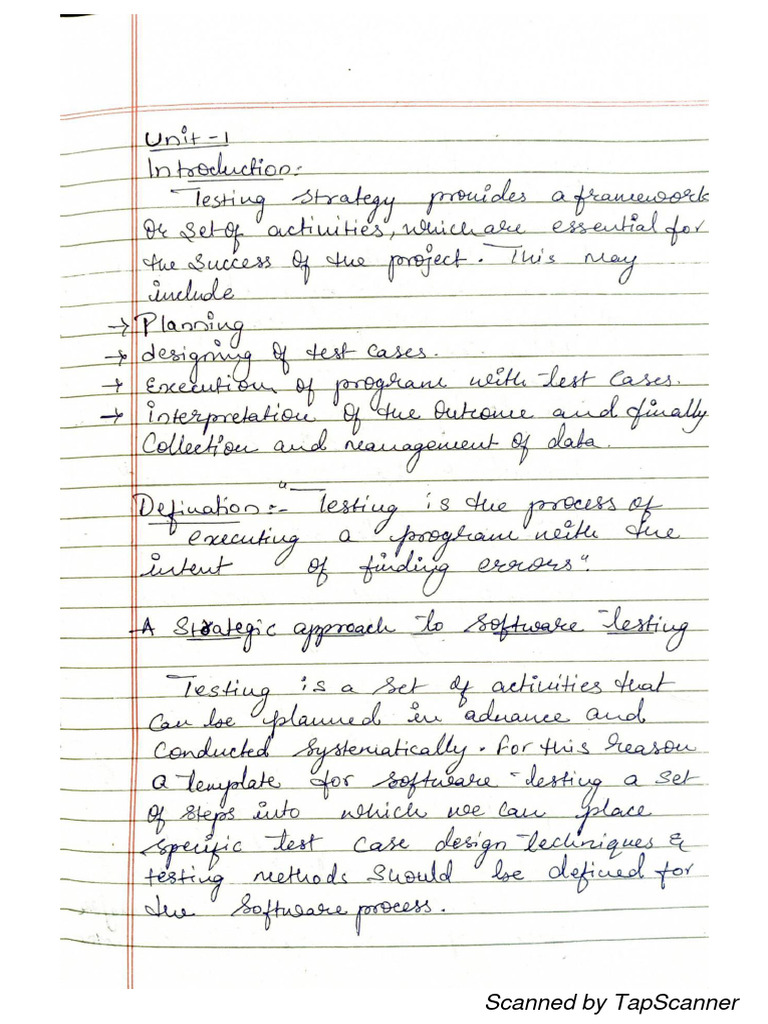 Unit-1
Introduction:-
Testing strategy provides a framework
or set of activities, which are essential for
the success of the project. This may
include
→ Planning
→ designing of test cases.
→ Execution of program with test cases.
→ interpretation of the outcome and finally
Collection and management of data.
Defination:- "Testing is the process of
executing a program with the
intent of finding errors".
A Strategic approach to Software Testing
Testing is a set of activities that
can be planned in advance and
conducted systematically. for this reason
a template for software testing a set
of steps into which we can place
specific test case design techniques &
testing methods should be defined for
the software process.
Scanned by TapScanner